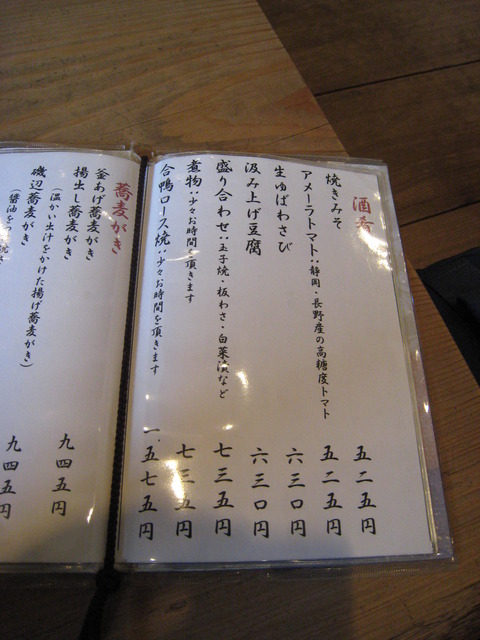 酒肴
焼きみそ 五二五円
アメーラトマト:静岡・長野産の高糖度トマト 五二五円
生ゆばわさび 六三〇円
汲み上げ豆腐 六三〇円
盛り合わせ:玉子焼・板わさ・白菜漬など 七三五円
煮物:少々お時間を頂きます 七三五円
合鴨ロース焼:少々お時間を頂きます 一、五七五円
蕎麦がき
釜あげ蕎麦がき
揚出し蕎麦がき 九四五円
(温かい出汁をかけた揚げ蕎麦がき)
磯辺蕎麦がき 九四五円
(醤油を